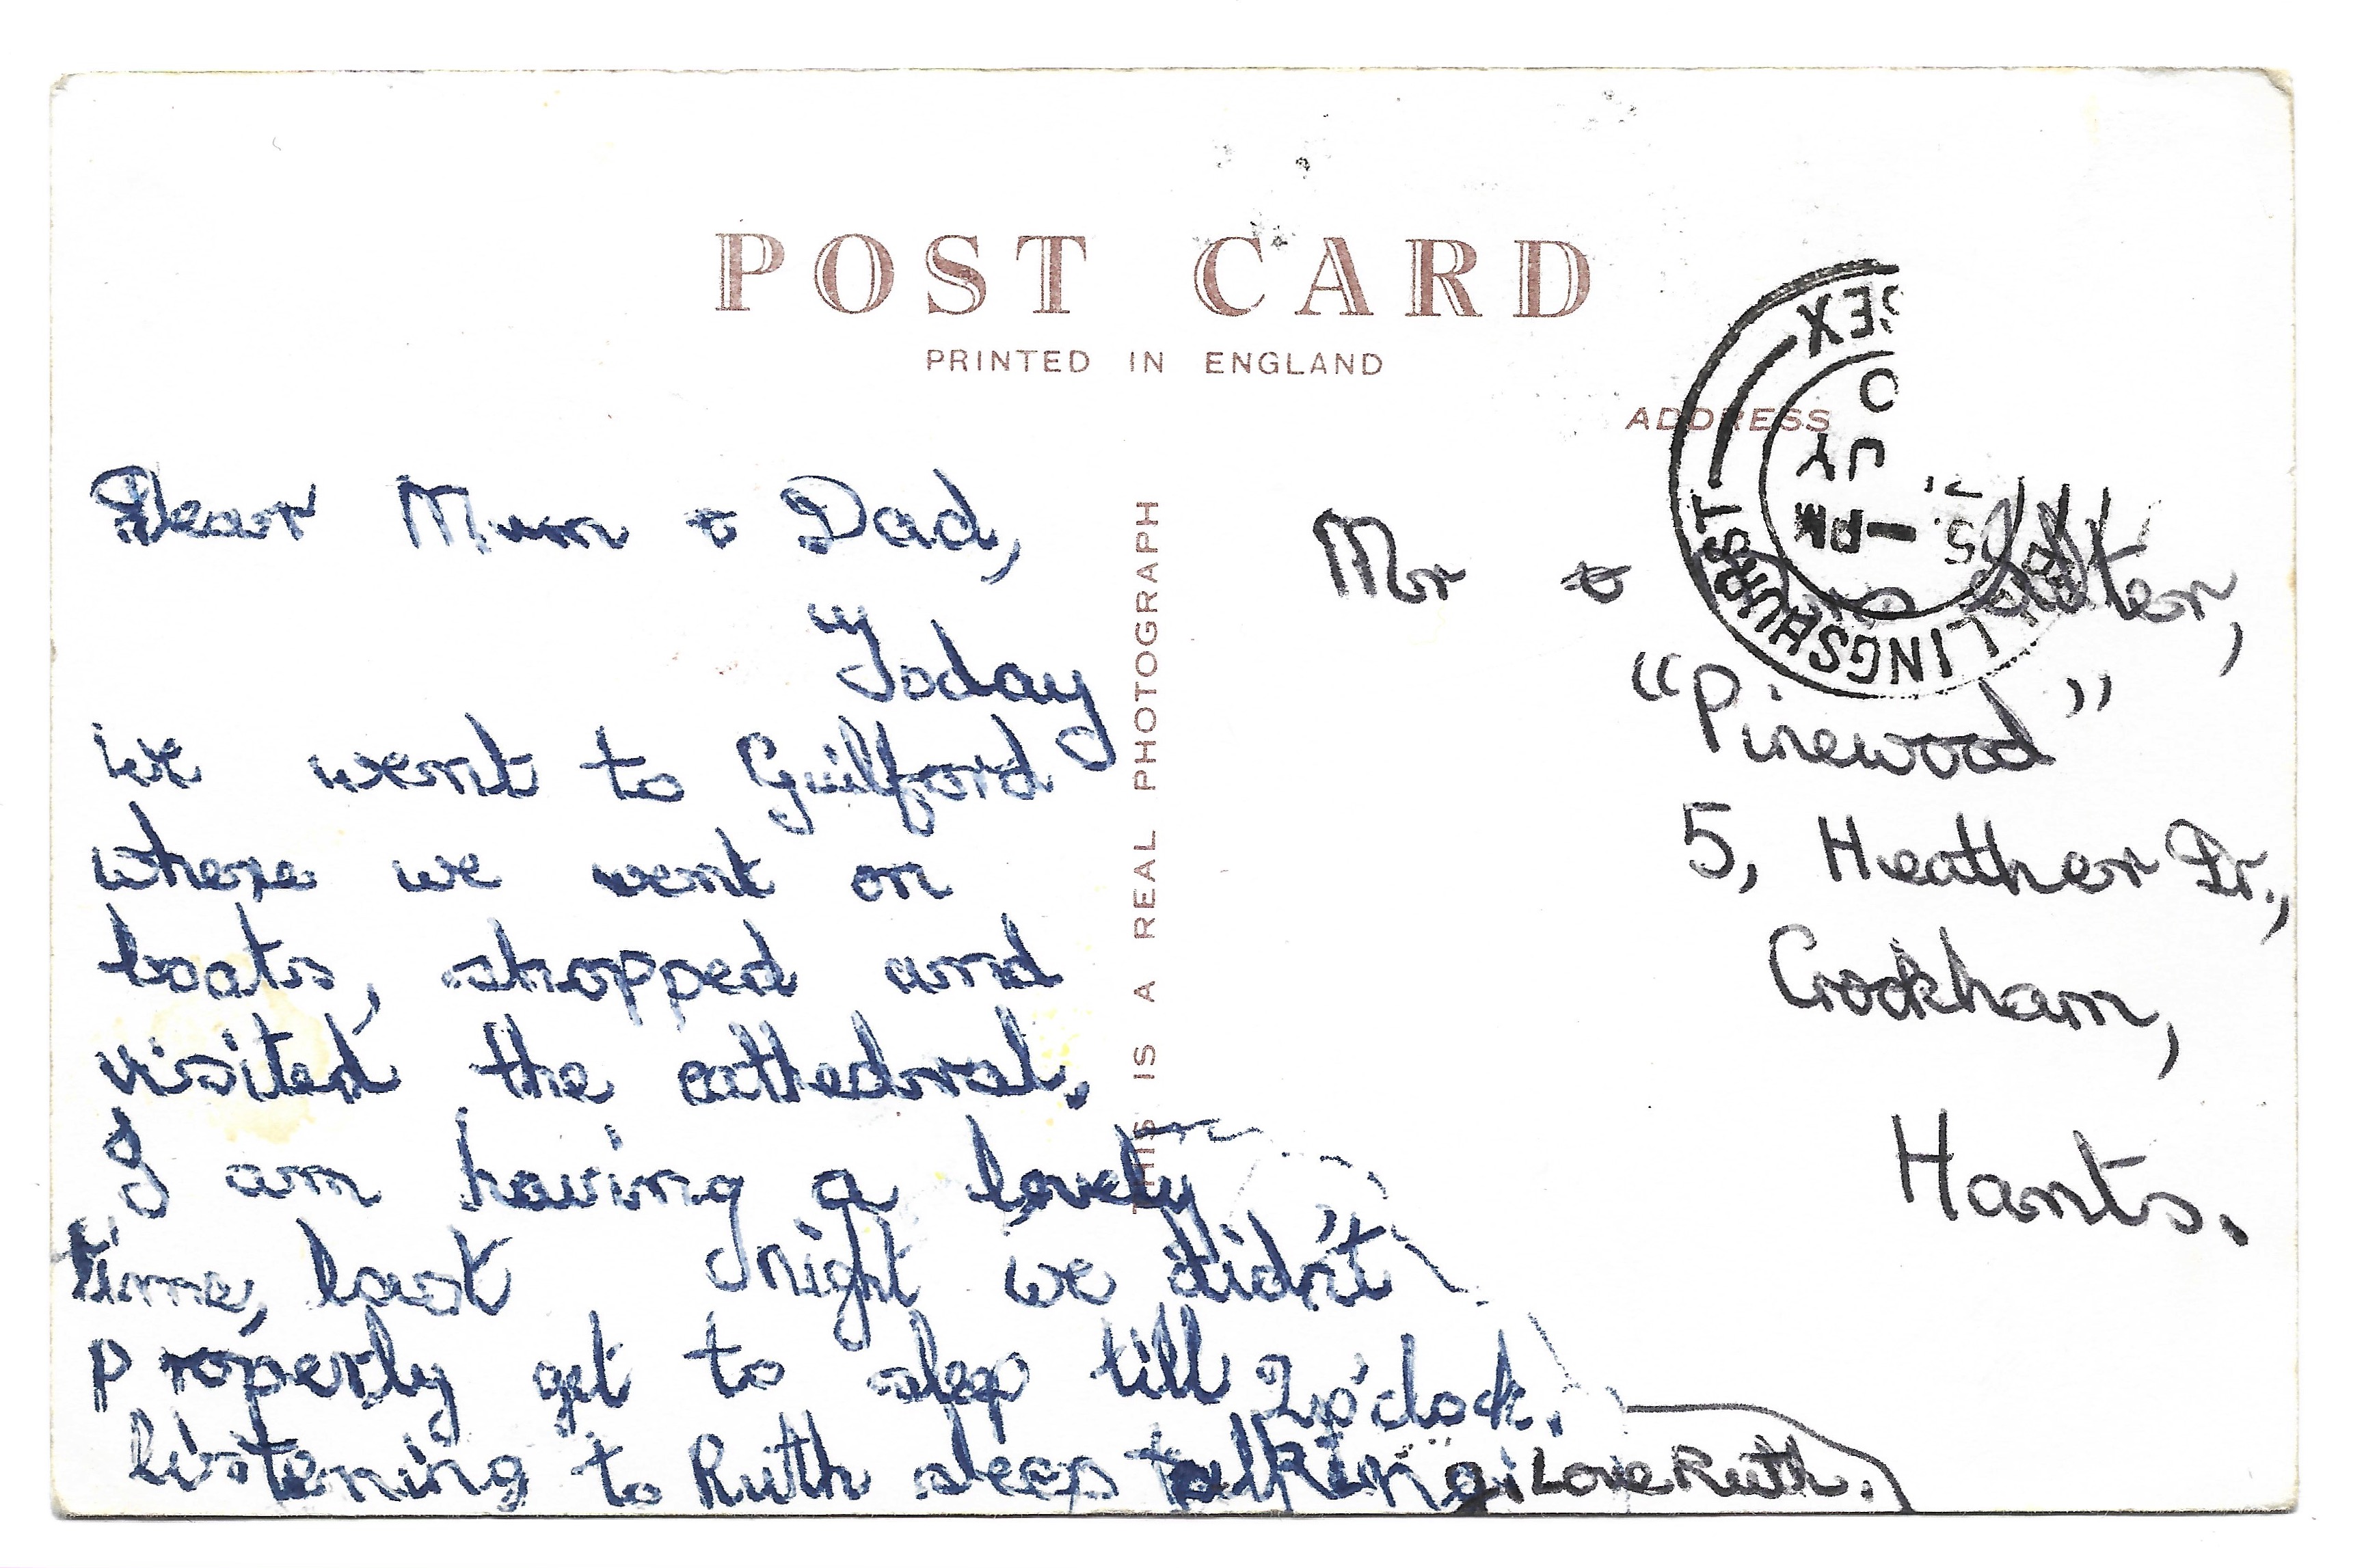 POST CARD
PRINTED IN ENGLAND
ADDRESS
THIS IS A REAL PHOTOGRAPH
Dear Mum & Dad,
Today
we went to Guilford
where we went on
boats, shopped and
visited the cathedral.
I am having a lovely
time, last night we didn't
properly get to sleep till 2 o'clock.
listening to Ruth sleep talking. Love Ruth.
Mr &
"Pinewood"
5, Heather Dr.,
Crookham,
Hants.
LINGSHURST
SEX
JY
PM